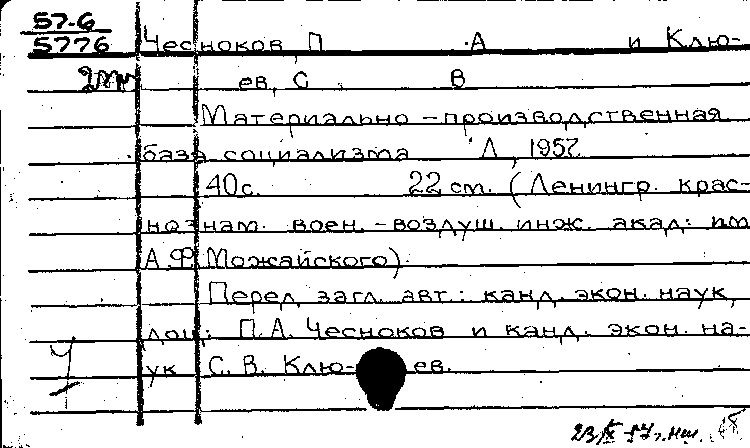 57-6
5776
Чесноков, П А и Клю-
ев, С. В
Материально-производственная
база социализма Л, 1957.
40с. 22 см. (Ленингр. крас-
нознам. воен.-воздуш. инж. акад. им
А.Ф. Можайского).
Перед загл. авт.: канд. экон. наук,
доц. П.А. Чесноков и канд. экон. на-
ук С. В. Клю-ев.